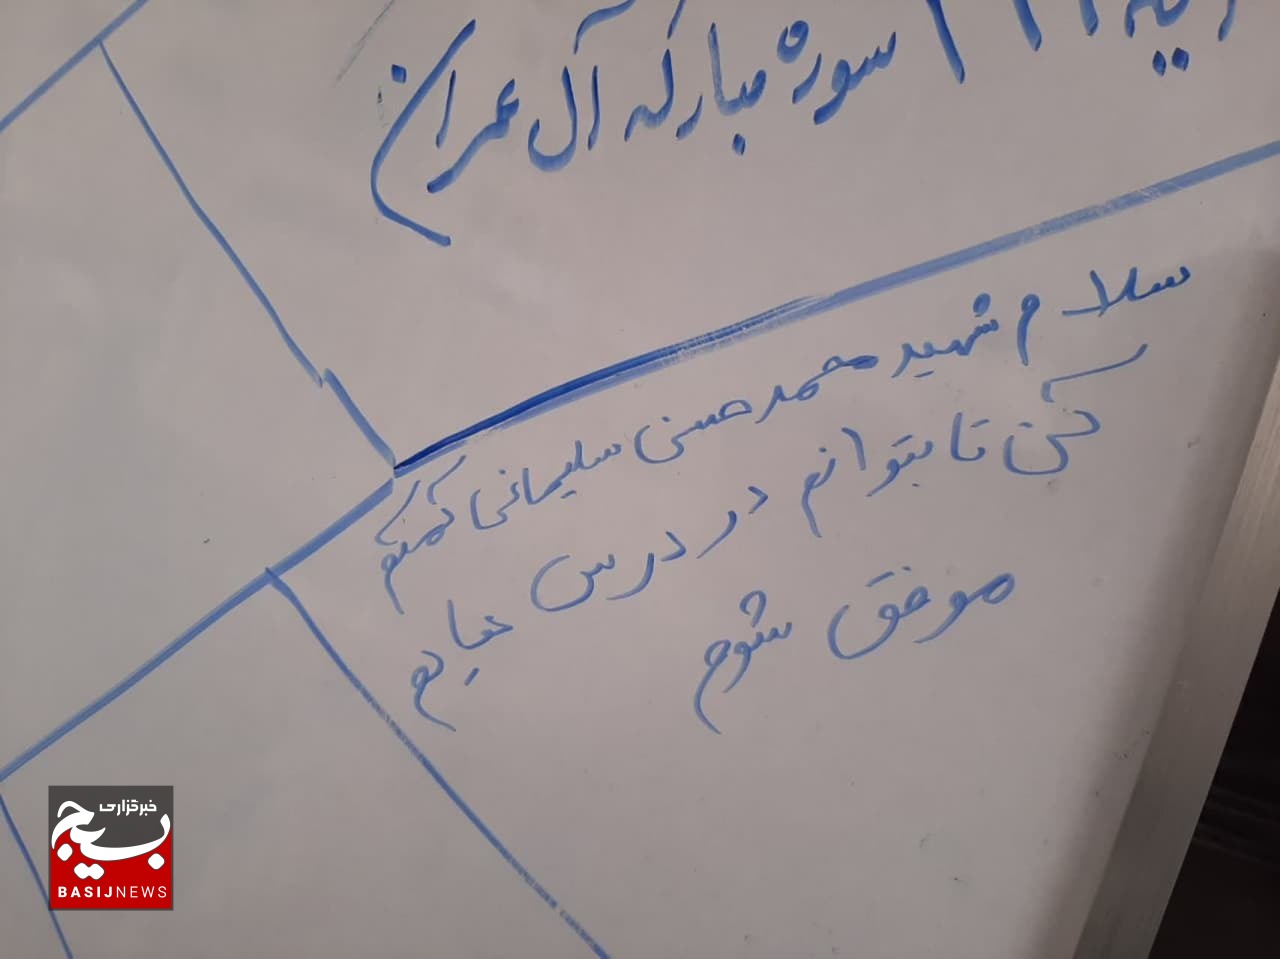 سوره مبارکه آل عمران
سلام شهید محمد حسن سلیمانی کمکم
کن تا بتوانم در درس هایم
موفق شوم
خبرگزاری
بسیج
BASIJNEWS